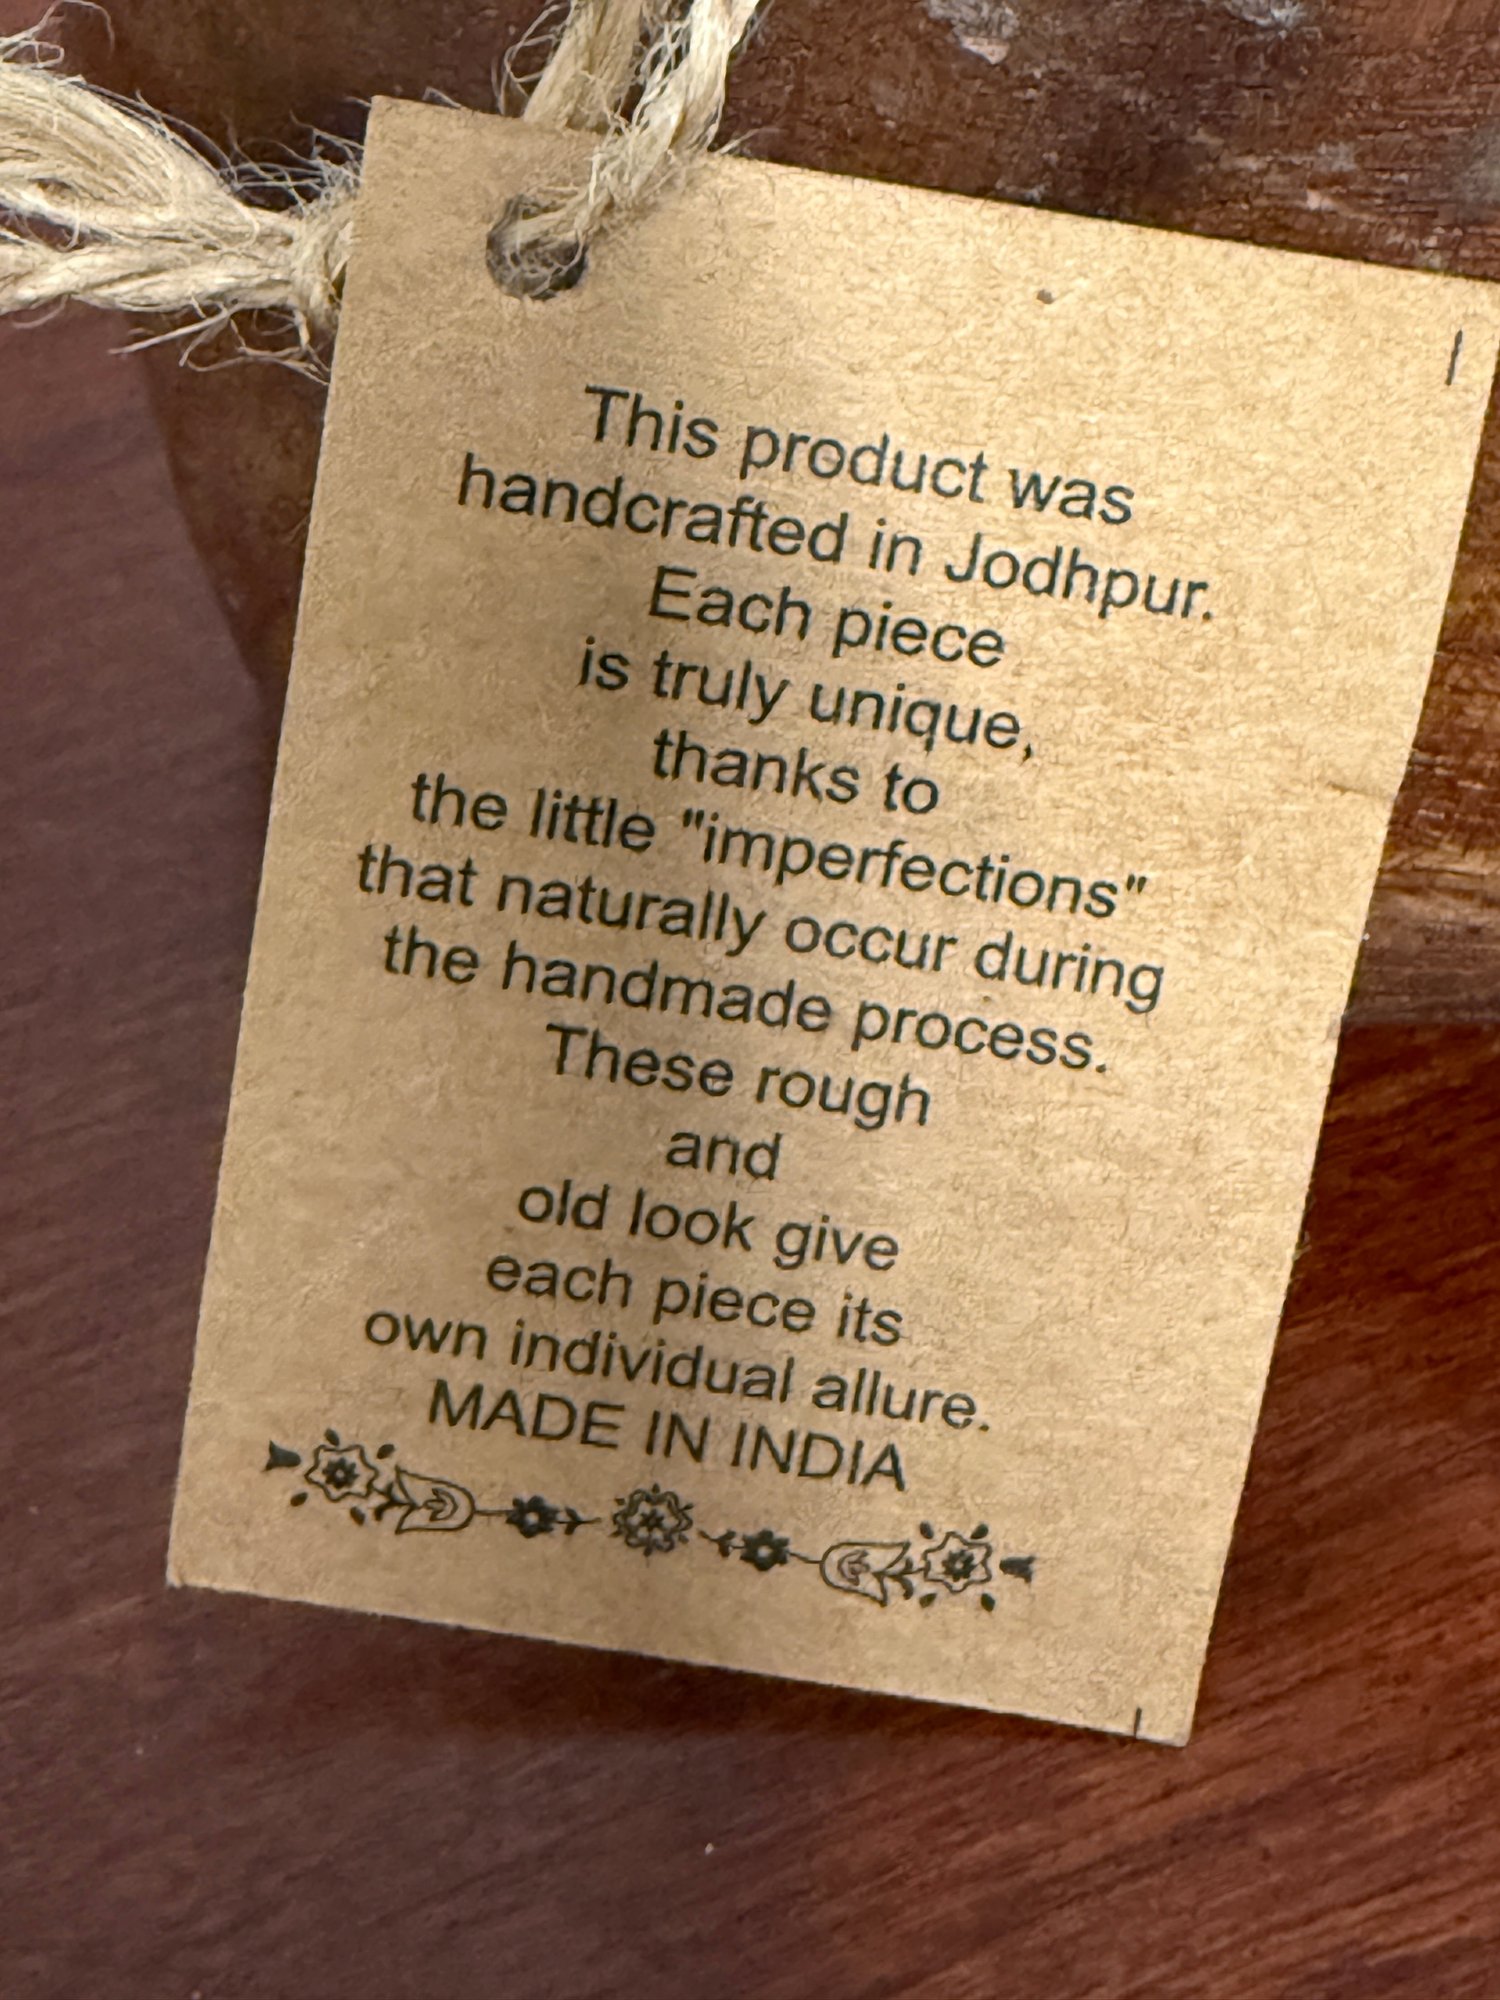 This product was
handcrafted in Jodhpur.
Each piece
is truly unique,
thanks to
the little "imperfections"
that naturally occur during
the handmade process.
These rough
and
old look give
each piece its
own individual allure.
MADE IN INDIA